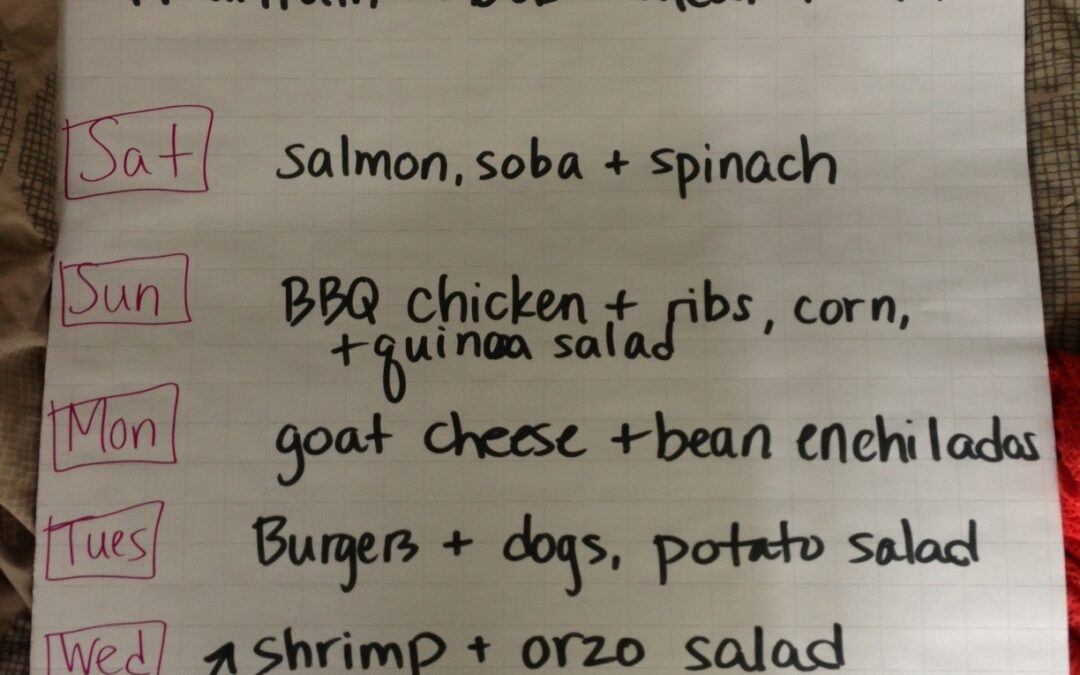 Sat salmon, soba + spinach
Sun BBQ chicken + ribs, corn,
+ quinoa salad
Mon goat cheese + bean enchiladas
Tues Burgers + dogs, potato salad
Wed ↗ shrimp + orzo salad